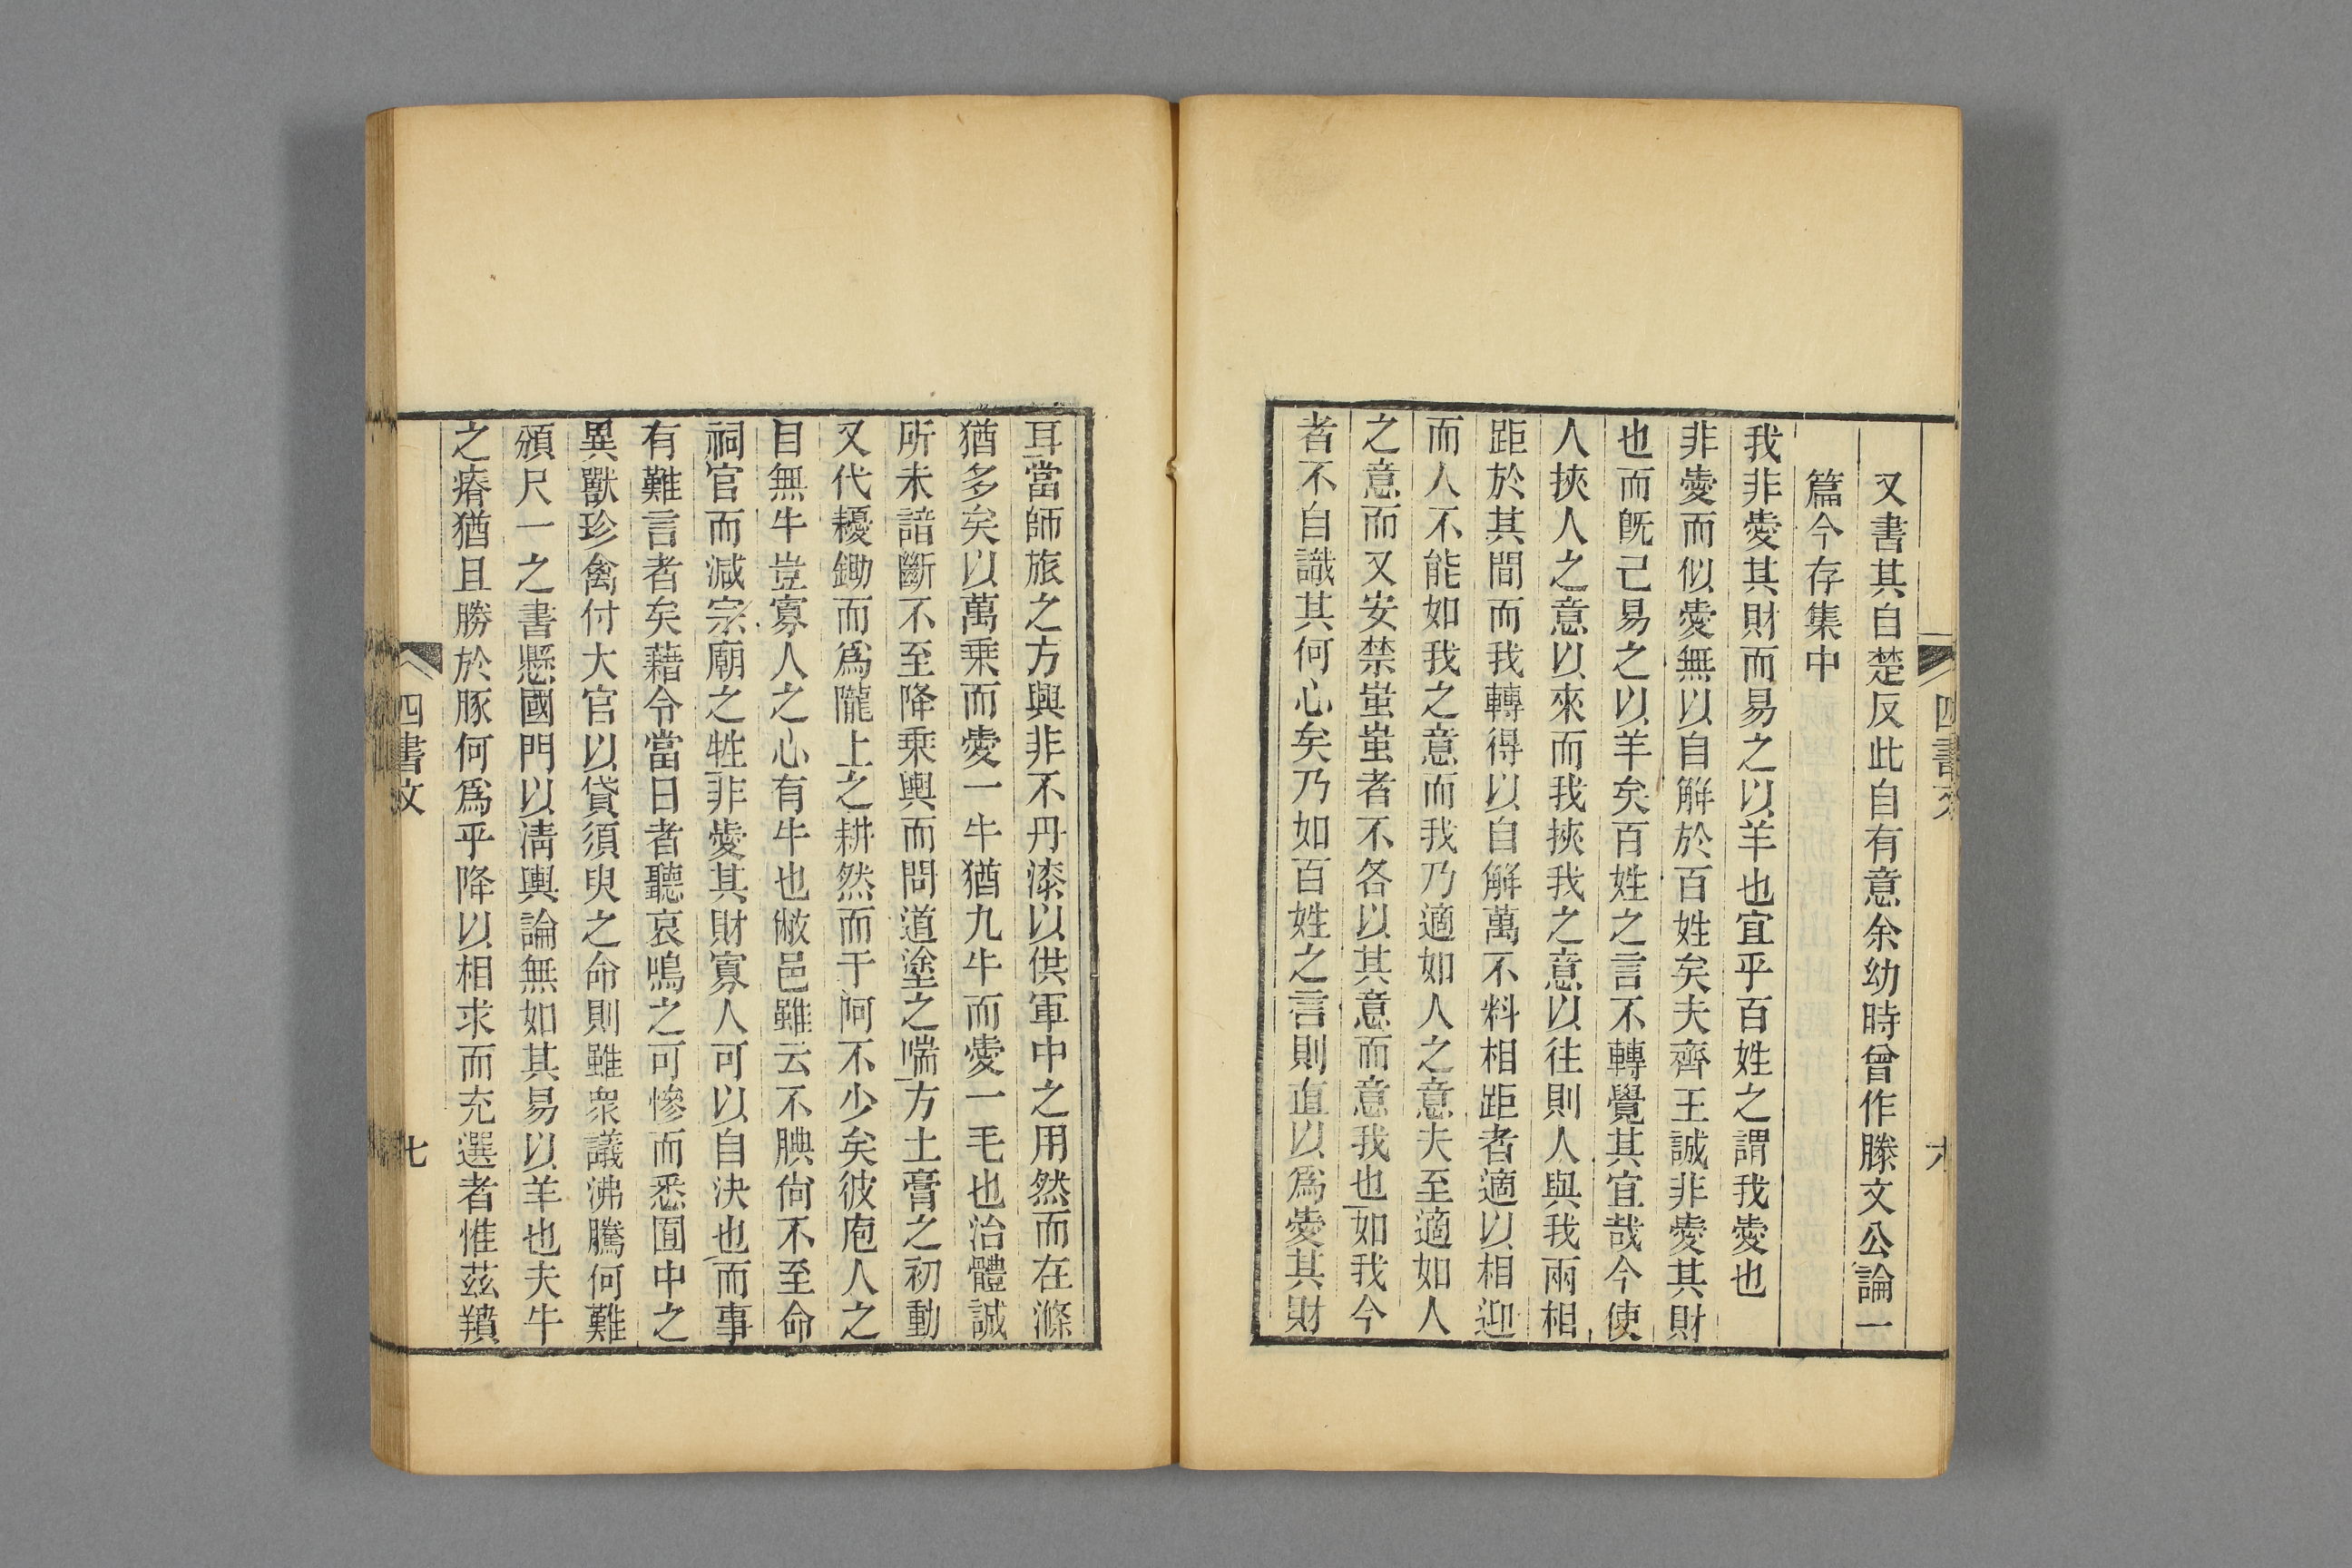 又書其自楚反此自有意余幼時曾作滕文公論一
篇今存集中
我非愛其財而易之以羊也宜乎百姓之謂我愛也
非愛而似愛無以自解於百姓矣夫齊王誠非愛其財
也而既己易之以羊矣百姓之言不轉覺其宜哉今使
人挾人之意以來而我挾我之意以往則人與我兩相
距於其間而我轉得以自解萬不料相距者適以相迎
而人不能如我之意而我乃適如人之意夫至適如人
之意而又安禁蚩蚩者不各以其意而意我也如我今
者不自識其何心矣乃如百姓之言則直以為愛其財
耳當師旅之方興非不丹漆以供軍中之用然而在滌
猶多矣以萬乗而愛一牛猶九牛而愛一毛也治體誠
所未諳斷不至降乗輿而問道塗之喘方土膏之初動
又代耰鋤而為隴上之耕然而于阿不少矣彼庖人之
目無牛豈寡人之心有牛也敝邑雖云不腆尙不至命
祠官而減宗廟之牲非愛其財寡人可以自決也而事
有難言者矣藉令當日者聽哀鳴之可慘而悉囿中之
異獸珍禽付大官以貸須臾之命則雖衆議沸騰何難
頒尺一之書懸國門以清輿論無如其易以羊也夫牛
之瘠猶且勝於豚何為乎降以相求而充選者惟茲羵
四書文
七